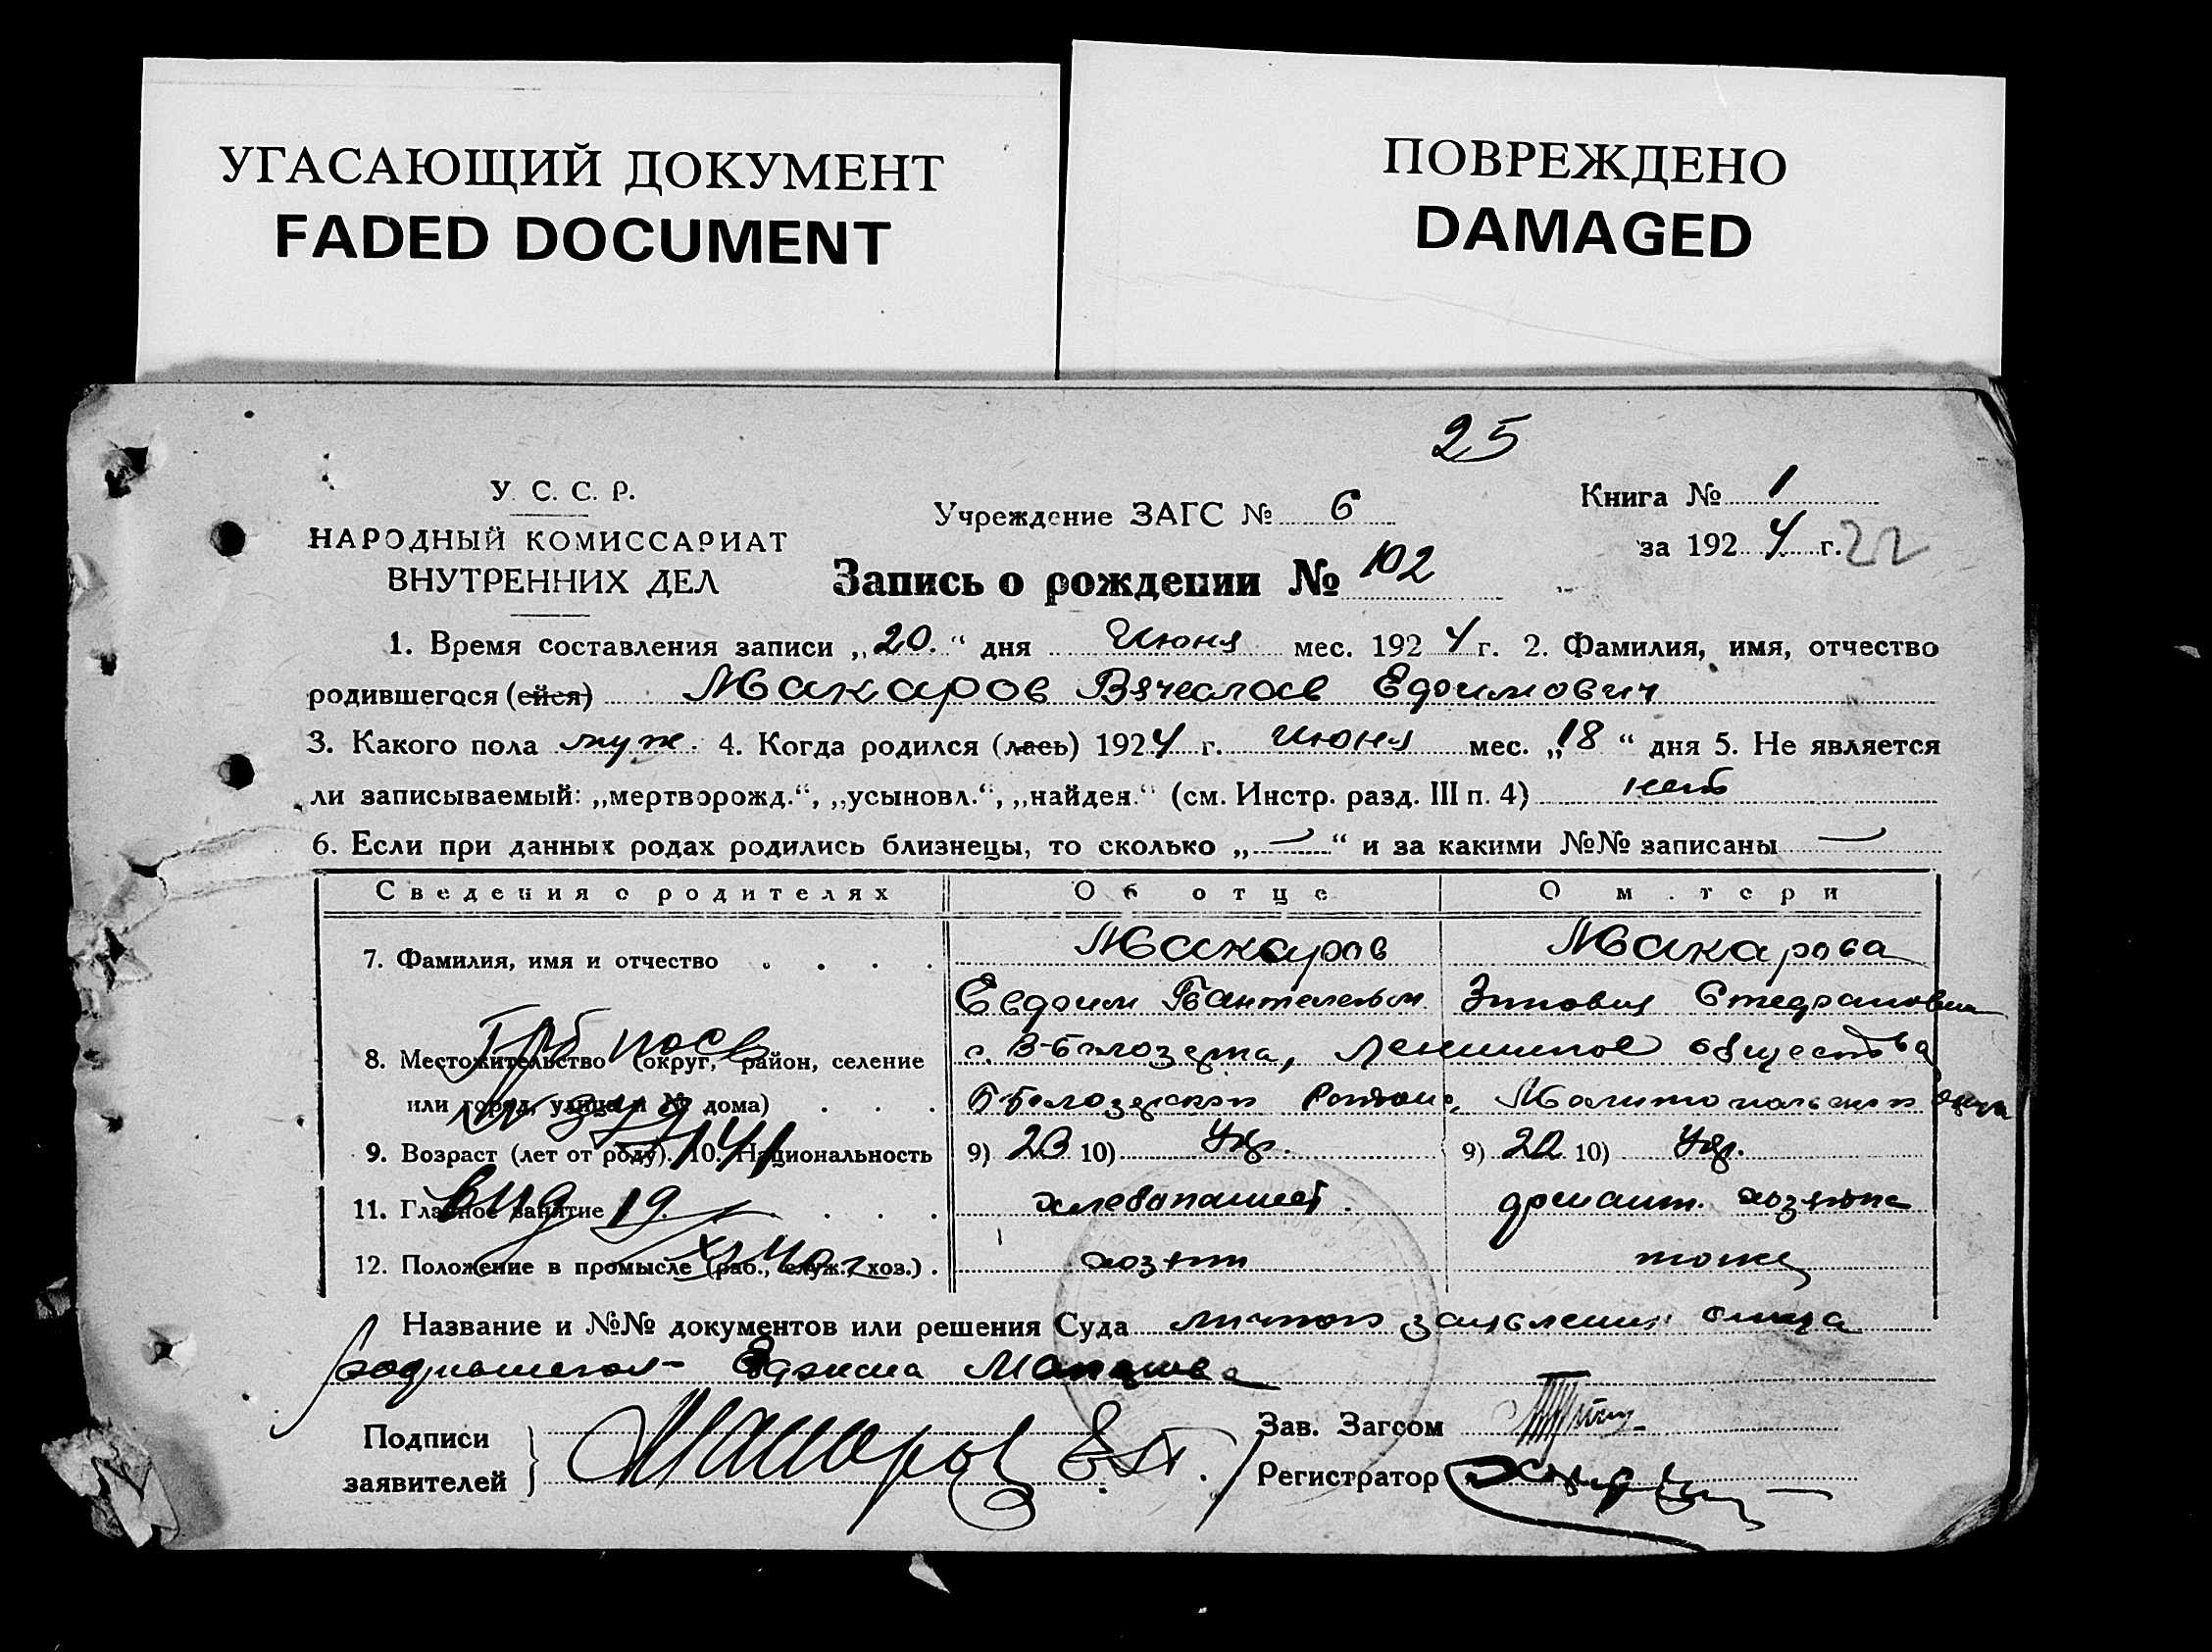 УГАСАЮЩИЙ ДОКУМЕНТ
FADED DOCUMENT
ПОВРЕЖДЕНО
DAMAGED
25
У. С. С. Р.
НАРОДНЫЙ КОМИССАРИАТ
ВНУТРЕННИХ ДЕЛ
Учреждение ЗАГС № 6
Книга № 1
за 1924 г. 22
Запись о рождении № 102
1. Время составления записи „20." дня Июня мес. 1924 г. 2. Фамилия, имя, отчество
родившегося (ейся) Макаров Вячеслав Едоимович
3. Какого пола муж. 4. Когда родился (лась) 1924 г. июня мес. „18" дня 5. Не является
ли записываемый: „мертворожд.", „усыновл.", „найден." (см. Инстр. разд. III п. 4) нет
6. Если при данных родах родились близнецы, то сколько „—" и за какими №№ записаны —
Сведения о родителях Об отце О м.тери
7. Фамилия, имя и отчество . . . . Макаров Макарова
Евдоим Зиновия
8. Местожительство (округ, район, селение с. В-Белозерка, общества
или город, улица и № дома) . . . 
9. Возраст (лет от роду). 10. Национальность 9) 23 10) Укр. 9) 22 10) Укр.
11. Главное занятие . . . . хлебопашест. домашн. хозяйка
12. Положение в промысле (раб., служ., хоз.) . хозяин тоже
Название и №№ документов или решения Суда заявления отца
родившегося Макарова
Подписи
заявителей
Макаров Е.П.
Зав. Загсом
Регистратор